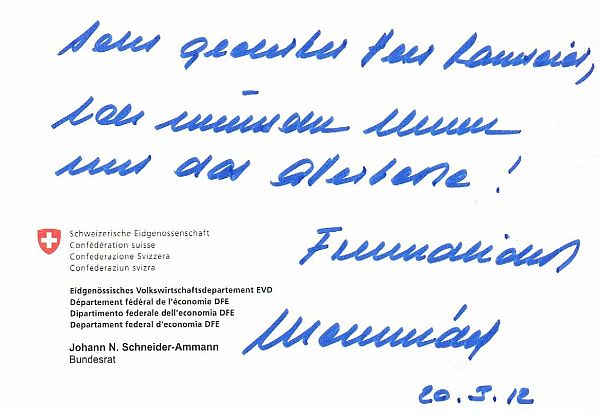 Sehr geehrter Herr Lanz
wir wünschen Ihnen
nur das Allerbeste!
Schweizerische Eidgenossenschaft
Confédération suisse
Confederazione Svizzera
Confederaziun svizra
Freundlichst
Eidgenössisches Volkswirtschaftsdepartement EVD
Département fédéral de l'économie DFE
Dipartimento federale dell'economia DFE
Departament federal d'economia DFE
Johann N. Schneider-Ammann
Bundesrat
20.3.12